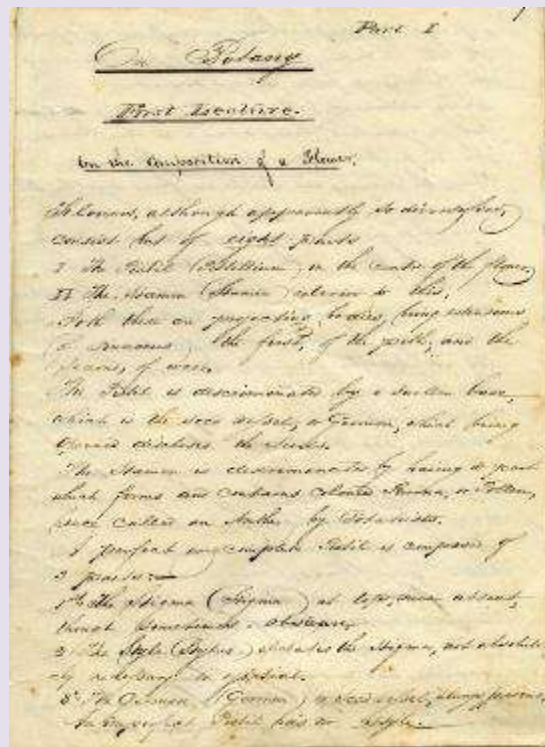 Part I
On Botany
First Lecture.
On the composition of a Flower.
Flowers, although apparently so diversified,
consist but of eight parts
I The Pistil (Pistillum) in the centre of the flower
II The Stamen (Stamen) exterior to this.
Both these are projecting bodies, being extensions
the first, of the pith, and the
of wood.
The Pistil is discriminated by a swollen base,
which is the seed vessel, or Germen, which being
opened discloses the seeds.
The Stamen is discriminated by having a part
which forms and contains coloured or Pollen,
called an Anther by Botanists.
A perfect and complete Pistil is composed of
3 parts:—
1st The Stigma (Stigma) at top, never absent,
though sometimes obscure.
2 The Style (Stylus) elevates the Stigma, not absolute
ly necessary
3d The Germen (Germen) or seed vessel, always present.
An imperfect Pistil has no style.—